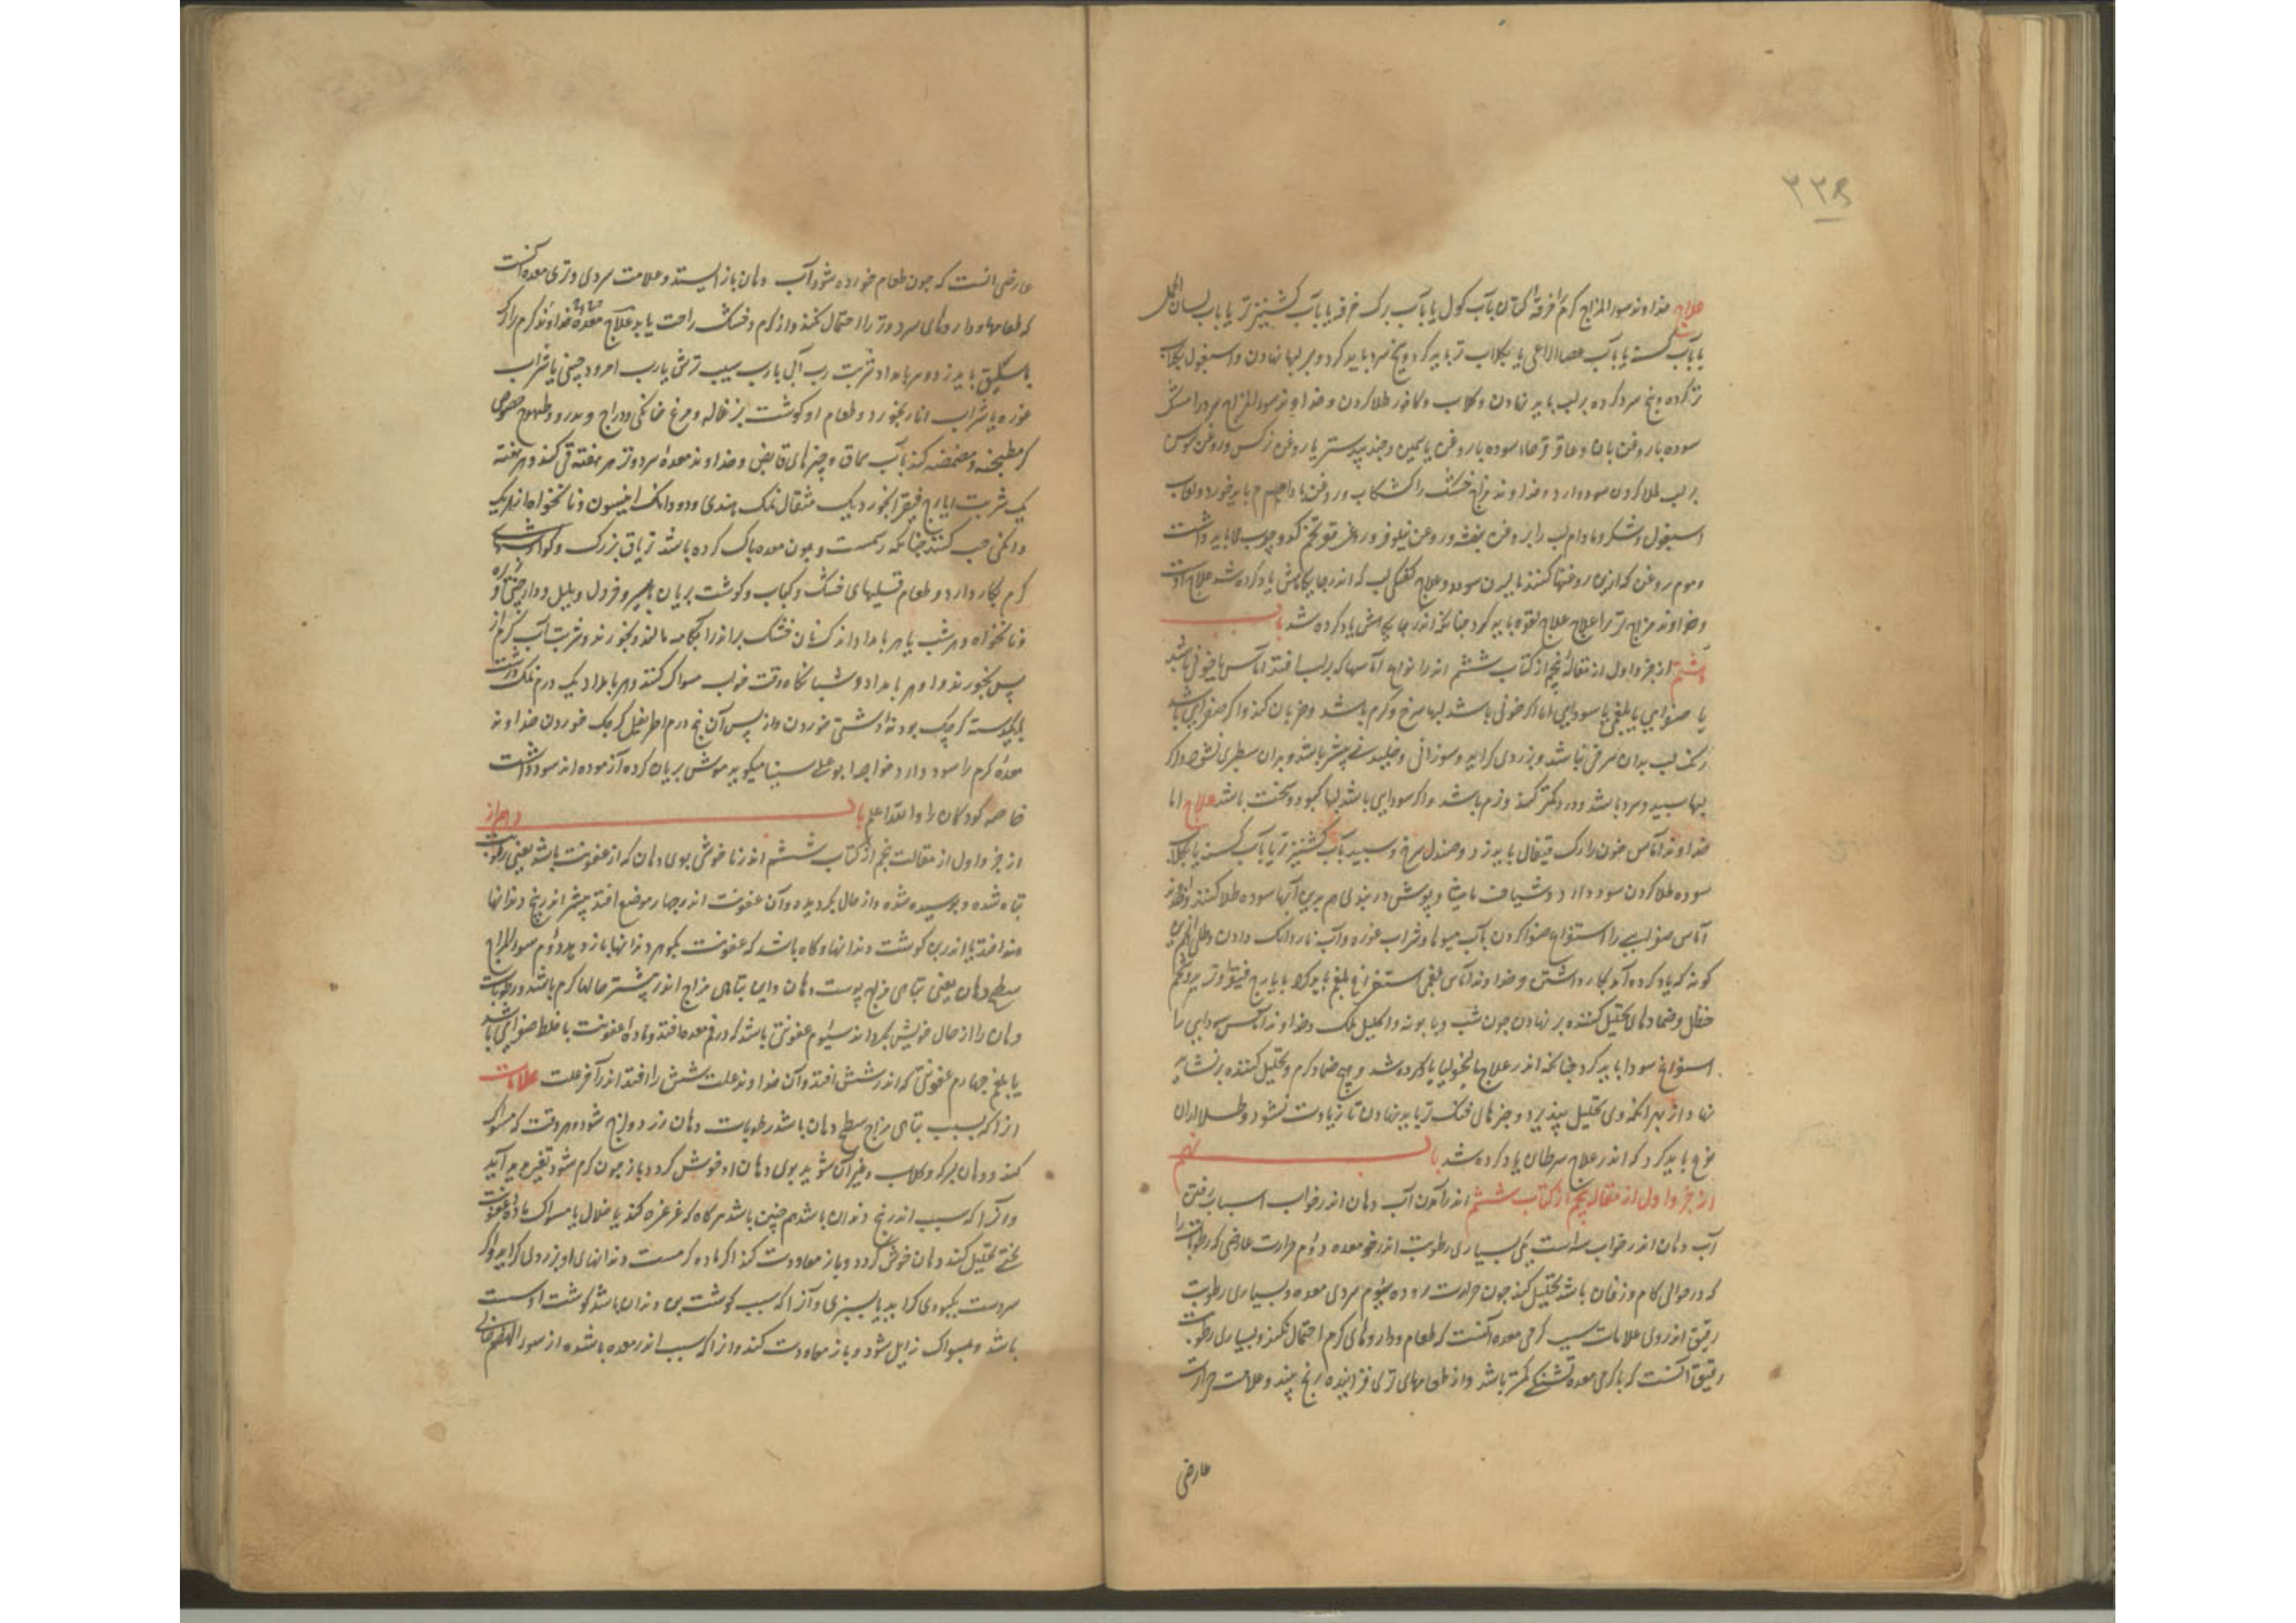 ۲۳۹
علاج خداوند سوء المزاج کرم را خرقه کتان بآب کوک یا بآب برک خرفه یا بآب کشنیز تر یا بآب لسان الحمل
یا بآب کسنه یا بآب عصا الراعی یا بکلاب تر باید کرد و بیخ سرد باید کرد و بر لبها نهادن و اسبغول بکلاب
تر کرده و بیخ سرد کرده بر لب باید نهادن و کلاب و کافور طلا کردن و خداوند سوء المزاج سرد را مشک
سوده با روغن بان و عاقرقرحا سوده با روغن یاسمین و جندبیدستر با روغن نرکس و روغن سوسن
بر لب طلا کردن سود دارد و خداوند مزاج خشک را کشکاب و روغن بادام باید خورد و لعاب
اسبغول و شکر و مادام لب را بروغن بنفشه و روغن نیلوفر و روغن تخم کدو چرب باید داشت
و موم روغن که ازین روغنها کنند مالیدن سود دارد و علاج کفتکی لب که اندر جایکاهش یاد کرده شد علاج اوست
و خداوند مزاج تر را علاج علاج لقوه باید کرد چنانکه اندر جایکاهش یاد کرده شد باب
هشتم از جزو اول از مقاله پنجم از کتاب ششم اندر انواع آماسها که بر لب افتد آماس یا خونی باشد
یا صفرایی یا بلغمی یا سودایی اما اکر خونی باشد لبها سرخ و کرم باشد و ضربان کند و اکر صفرایی باشد
رنک لب بدان سرخی نباشد و بزردی کراید و سوزانی و خلیدنی بیشتر باشد و بدان سطبری نشود و اکر
لبها سپید و سرد باشد و درد کمتر کند و نرم باشد و اکر سودایی باشد لبها کبود و سخت باشد علاج اما
خداوند آماس خون را رک قیفال باید زد و صندل سرخ و سپید بآب کشنیز تر یا بآب کسنه یا بکلاب
سوده طلا کردن سود دارد و شیاف مامیثا و پوش دربندی هم بدین آبها سوده طلا کنند و خداوند
آماس صفرایی را استفراغ صفرا کردن بآب میوها و شراب غوره و آب ناردانک دادن و طلی هم برین
کونه که یاد کرده آمد بکار داشتن و خداوند آماس بلغمی استفراغ بلغم باید کرد بایارج فیقرا و تربد و شحم
حنظل و ضمادهای تحلیل کننده بر نهادن چون شبت و بابونه و اکلیل الملک و خداوند آماس سودایی را
استفراغ سودا باید کرد چنانکه اندر علاج مالیخولیا یاد کرده شد و هیچ ضماد کرم و تحلیل کننده برنشاید
نهاد از بهر آنکه وی تحلیل نپذیرد و چیزهای خنک تر باید نهادن تا زیادت نشود و طلا بدان
نوع باید کرد که اندر علاج سرطان یاد کرده شد باب نهم
از جزو اول از مقاله پنجم از کتاب ششم اندر آمدن آب دهان اندر خواب اسباب رفتن
آب دهان اندر خواب سه است یکی بسیاری رطوبت اندر فم معده دوم حرارت عارضی که رطوبات را
که در حوالی کام و زفان باشد تحلیل کند چون حرارت روده سیوم سردی معده و بسیاری رطوبت
رقیق اندر وی علامات سبب کرمی معده آنست که طعام و داروهای کرم احتمال نکند و بسیاری رطوبت
رقیق آنست که با کرمی معده تشنکی کمتر باشد و از طعامهای تری فزاینده رنج بیند و علامت حرارت
عارضی
عارضی آنست که چون طعام خورده شود آب دهان باز ایستد و علامت سردی و تری معده آنست
که طعامها و داروهای سرد و تر را احتمال نکند و از کرم و خشک راحت یابد علاج خداوند معده کرم را رک
باسلیق باید زد و هر بامداد شربت رب آبی یا رب سیب ترش یا رب امرود چینی یا شراب
غوره یا شراب انار بخورد و طعام او کوشت بزغاله و مرغ خانکی و دراج و تدرو و طیهوج خصوص
کر مطجنه و مضمضه کند بآب سماق و چیزهای قابض و خداوند معده سرد و تر هر هفته قی کند و هر هفته
یک شربت ایارج فیقرا بخورد یک مثقال نمک هندی و دو دانک انیسون و نانخواه از هر یک
دانکی حب کنند چنانکه رسمست و چون معده پاک کرده باشد تریاق بزرک و کوارشهای
کرم بکار دارد و طعام قلیهای خشک و کباب و کوشت بریان با سیر و خردل و پلپل و دارچینی و زیره
و نانخواه و هر شب یا هر بامداد اندک نان خشک براندر آبکامه مالند و بخورند و شربت آب کرم از
پس بخورند و هر بامداد و شبانکاه وقت خواب مسواک کنند و هر بامداد یک درم نمک درشت
بودنه دشتی خوردن و از پس آن پنج درم اطریفل کوچک خوردن خداوند
معده کرم را سود دارد خواجه ابو علی سینا میکوید موش بریان کرده آزموده اند سود داشت
خاصه کودکان را والله اعلم باب دهم از
از جزو اول از مقالت پنجم از کتاب ششم اندر ناخوشی بوی دهان که از عفونت باشد یعنی رطوبت
تباه شده و بوسیده شده و از حال بکردیده و آن عفونت اندر چهار موضع افتد بیشتر اندر بیخ دندانها
افتد یا اندر بن کوشت دندانها و کاه باشد که عفونت بکوهر دندانها باز دهد دوم سوء المزاج
سطح دهان یعنی تباهی مزاج پوست دهان و این تباهی مزاج اندر بیشتر حالها کرم باشد و رطوبات
دهان را از حال خویش بکرداند سیوم عفونتی باشد که در فم معده افتد و ماده عفونت یا خلط صفرایی باشد
یا بلغم چهارم عفونتی که اندر شش افتد و آن خداوند علت شش را افتد اندر آخر علت علامات
از آنکه بسبب تباهی مزاج سطح دهان باشد رطوبات دهان زرد و لزج شود و هر وقت که مسواک
کند و دهان بسرکه و کلاب و غیر آن شوید بوی دهان او خوش کردد و باز چون کرم شود تغیر پدید آید
و آنرا که سبب اندر بیخ دندان باشد هم چنین باشد هرکاه که غرغره کند یا خلال یا مسواک ماده عفونت
لختی تحلیل کند دهان خوش کردد و باز معاودت کند اکر ماده کرمست دندانهای او بزردی کراید و اکر
سردست بکبودی کراید یا بسبزی و آنرا که سبب کوشت بن دندان باشد کوشت او سست
باشد و بمسواک زایل شود و باز معاودت کند و از آنکه سبب اندر معده باشد از سوء الهضم خالی